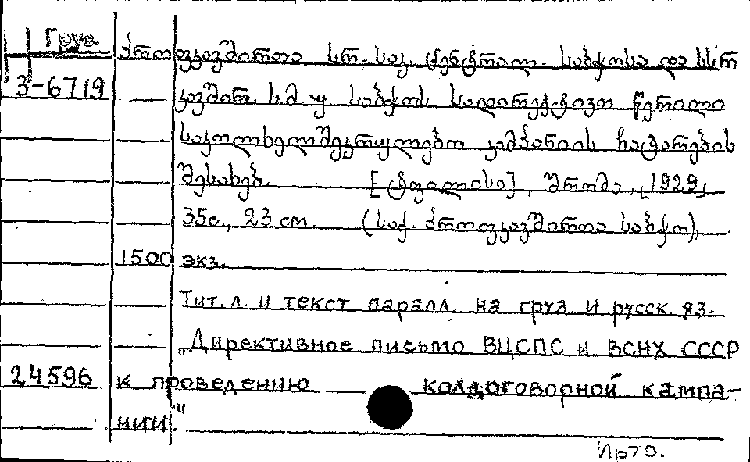 Груз
პროფკავშირთა სრ. საკ. ცენტრალ. საბჭოსა და სსრ
3-6719
კავშირ. ს.მ.უ. საბჭოს სადირექტივო წერილი
საკოლხელშეკრულებო კამპანიის ჩატარების
შესახებ. [ტფილისი], შრომა, [1929].
35с., 23 см. (საქ. პროფკავშირთა საბჭო).
1500 экз.
Тит. л. и текст паралл. на груз и русск. яз.
„Директивное письмо ВЦСПС и ВСНХ СССР
24596 к проведению колдоговорной кампа-
нии."